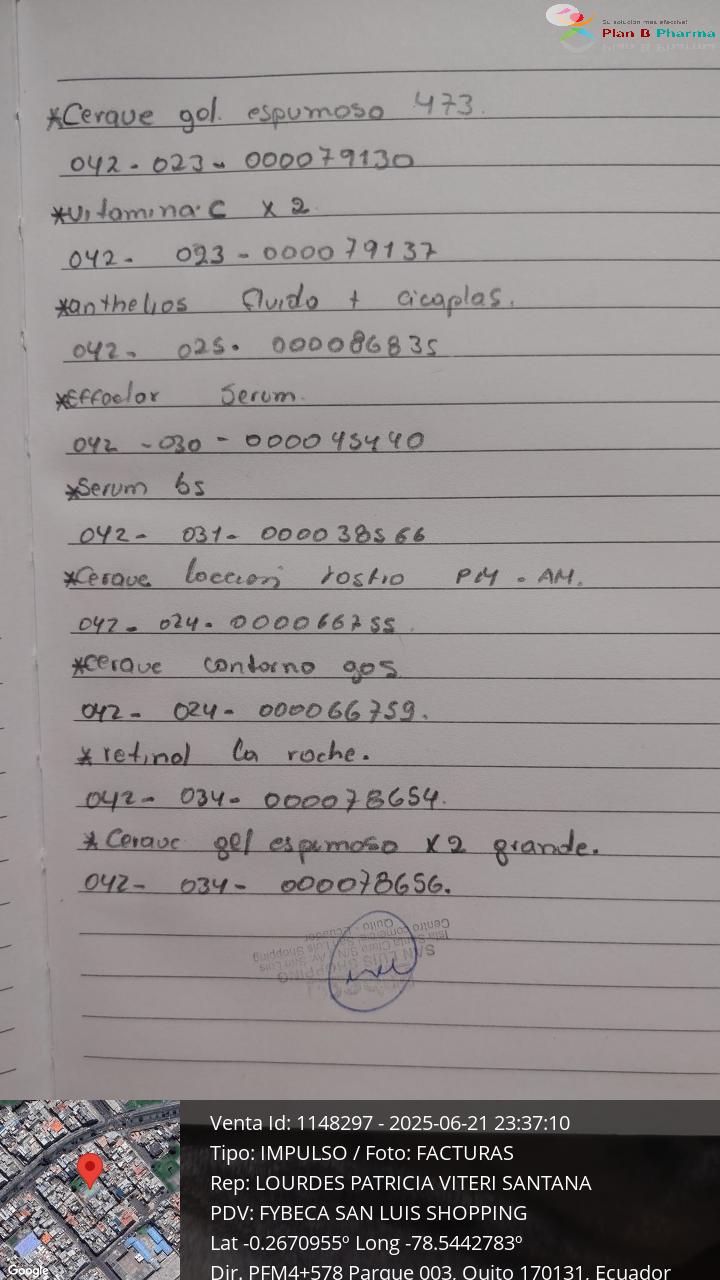 Su solucion mas efectiva!
Plan B Pharma
*Cerave gol. espumoso 473.
042-023-000079130
*Vitamina C x 2
042-023-000079137
*anthelios fluido + cicaplas.
042-025-000086835
*Effaclar Serum.
042-030-000045440
*Serum b5
042-031-000038566
*Cerave loccion rostro PM-AM.
042-024-000066755
*cerave contorno gos
042-024-000066759.
*retinol la roche.
042-034-000078654.
*Cerave gel espumoso x2 grande.
042-034-000078656.
SAN LUIS SHOPPING
Isla Santa Clara S/N y Av. San Luis
Centro Comercial San Luis Shopping
Quito - Ecuador
Google
Venta Id: 1148297 - 2025-06-21 23:37:10
Tipo: IMPULSO / Foto: FACTURAS
Rep: LOURDES PATRICIA VITERI SANTANA
PDV: FYBECA SAN LUIS SHOPPING
Lat -0.2670955º Long -78.5442783º
Dir. PFM4+578 Parque 003, Quito 170131, Ecuador